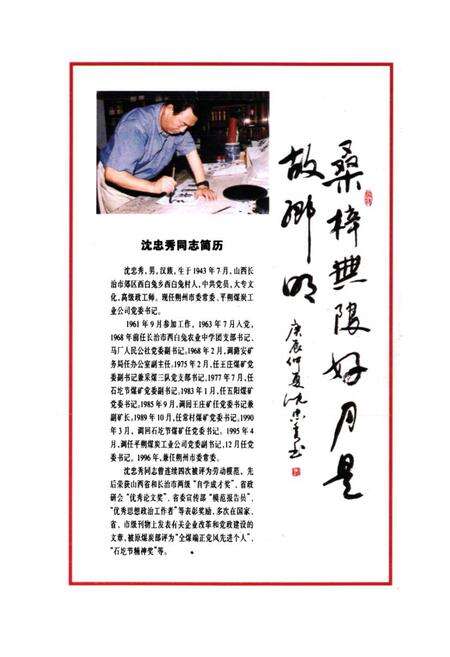 沈忠秀同志简历
沈忠秀,男,汉族,生于1943年7月,山西长
治市郊区西白兔乡西白兔村人,中共党员,大专文
化,高级政工师。现任朔州市委常委、平朔煤炭工
业公司党委书记。
1961年9月参加工作,1963年7月入党,
1968年前任长治市西白兔农业中学团支部书记、
马厂人民公社党委副书记。1968年2月,调潞安矿
务局任办公室副主任,1975年2月,任王庄煤矿党
委副书记兼采煤三队党支部书记,1977年7月,任
石圪节煤矿党委副书记,1983年1月,任五阳煤矿
党委书记,1985年9月,调回王庄矿任党委书记兼
副矿长,1989年10月,任常村煤矿党委书记,1990
年3月,调回石圪节煤矿任党委书记。1995年4
月,调任平朔煤炭工业公司党委副书记,12月任党
委书记。1996年,兼任朔州市委常委。
沈忠秀同志曾连续四次被评为劳动模范,先
后荣获山西省和长治市两级“自学成才奖”、省政
研会“优秀论文奖”、省委宣传部“模范报告员”、
“优秀思想政治工作者”等表彰奖励,多次在国家、
省、市级刊物上发表有关企业改革和党政建设的
文章,被原煤炭部评为“全煤端正党风先进个人”、
“石圪节精神奖”等。
桑梓无限好月是
故乡明
庚辰仲夏沈忠秀书